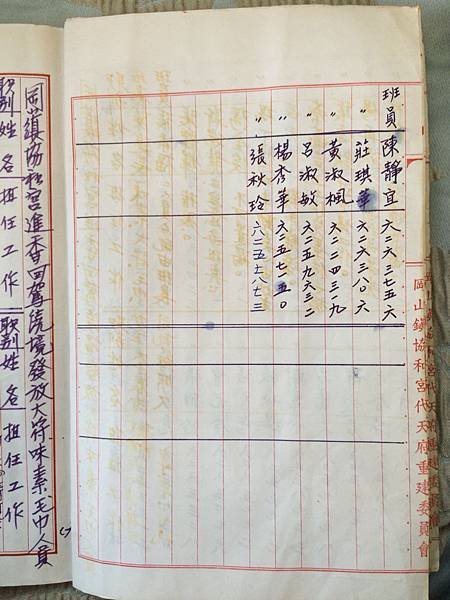 岡山鎮協和宮代天府重建委員會
班員 陳靜宜 六二六三七五六
〃 莊琪華 六二六三八〇六
〃 黃淑楓 六二二四三一九
〃 呂淑敏 六二五九六三二
〃 楊秀華 六二五七一五〇
〃 張秋玲
岡鎮協和宮進香回駕繞境發放大符味素毛巾人員
職別 姓名 担任工作 職別 姓名 担任工作